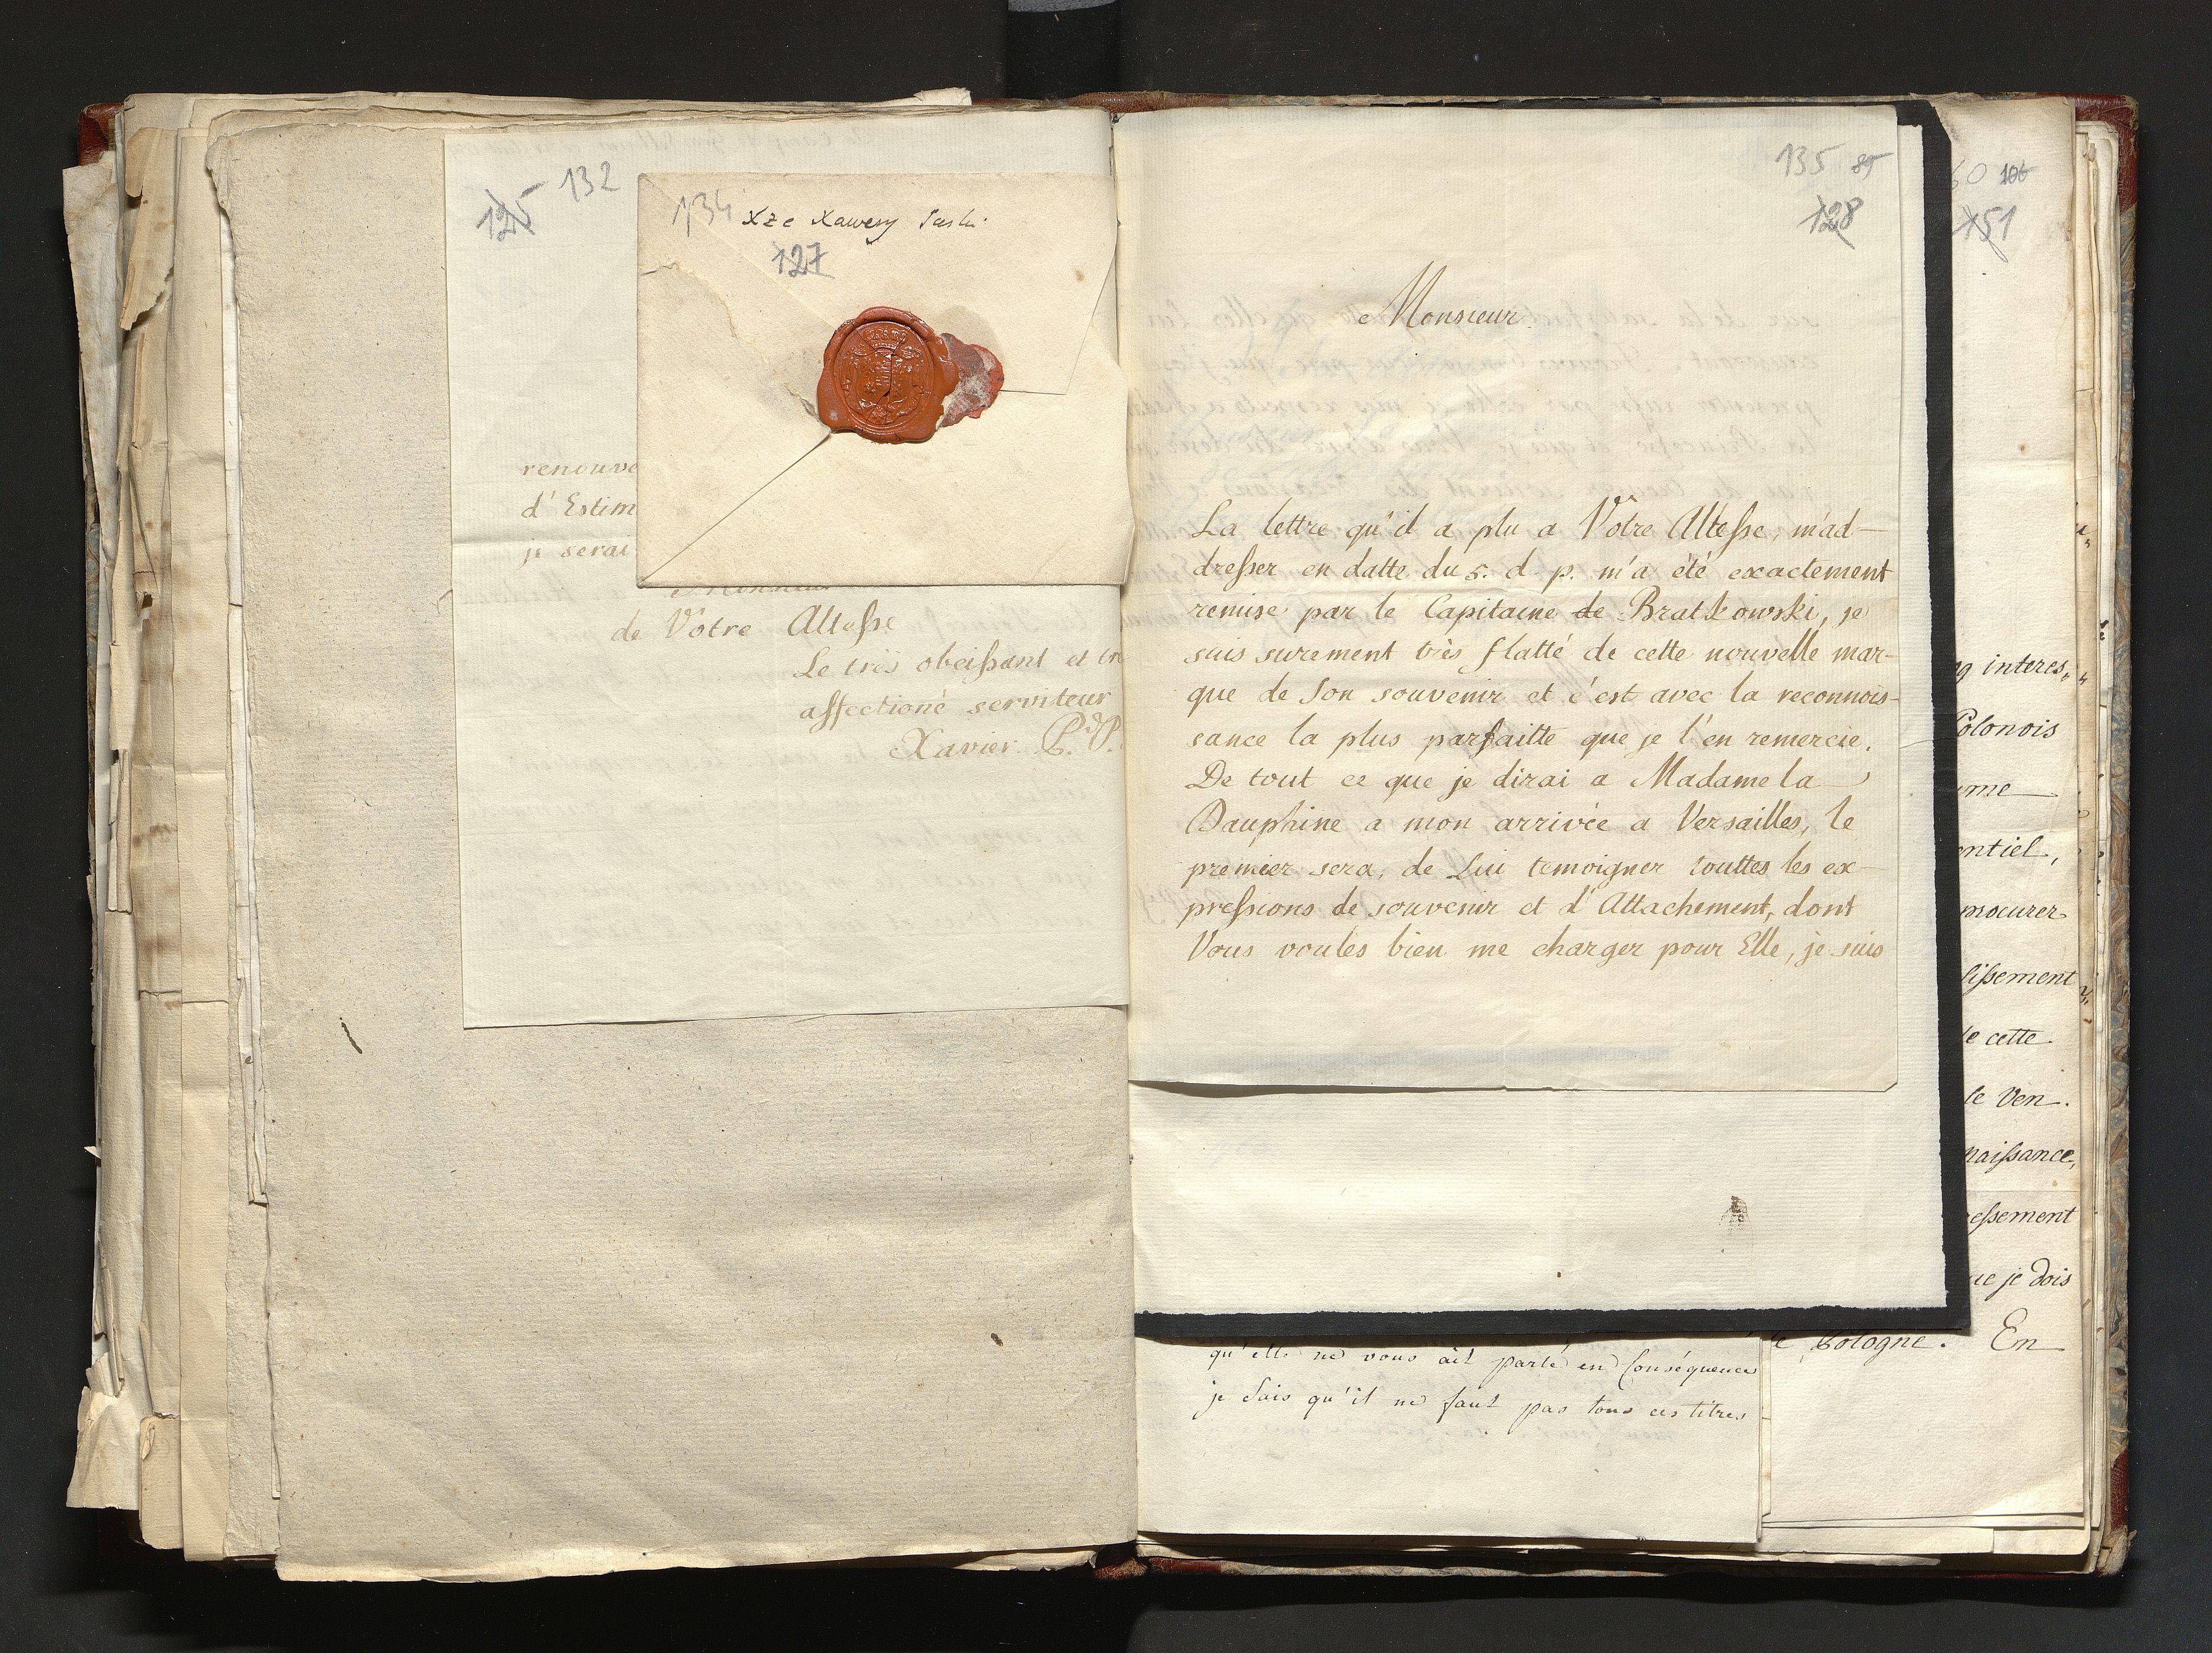 125 132
134 Xże Xawery Saski
127
renouve
d'Estim
je serai
de Votre Altesse
Le très obeissant et tr
affectioné serviteur
Xavier P.
135 85
128
Monsieur.
La lettre qu'il a plu a Votre Altesse, m'ad-
dresser en datte du 5. d. p. m'a été exactement
remise par le Capitaine de Bratkowski, je
suis surement très flatté de cette nouvelle mar-
que de Son souvenir et c'est avec la reconnois-
sance la plus parfaitte que je l'en remercie.
De tout ce que je dirai a Madame la
Dauphine a mon arrivée a Versailles, le
premier sera, de Lui temoigner touttes les ex-
pressions de souvenir et d'Attachement, dont
Vous voules bien me charger pour Elle, je suis
qu'elle ne vous ait parlé en Conséquence
je Sais qu'il ne faut pas tous ces titres
60 106
151
interes,
Polonois
me
entiel,
procurer
lissement
de cette
le Ven.
naissance,
essement
ue je dois
e Pologne. En